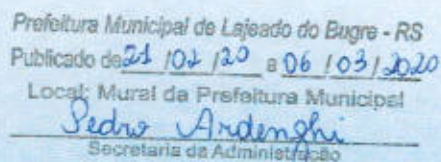 Prefeitura Municipal de Lajeado do Bugre - RS
Publicado de 21 / 02 / 20 a 06 / 03 / 2020
Local: Mural da Prefeitura Municipal
Pedro Ardenghi
Secretaria da Administração